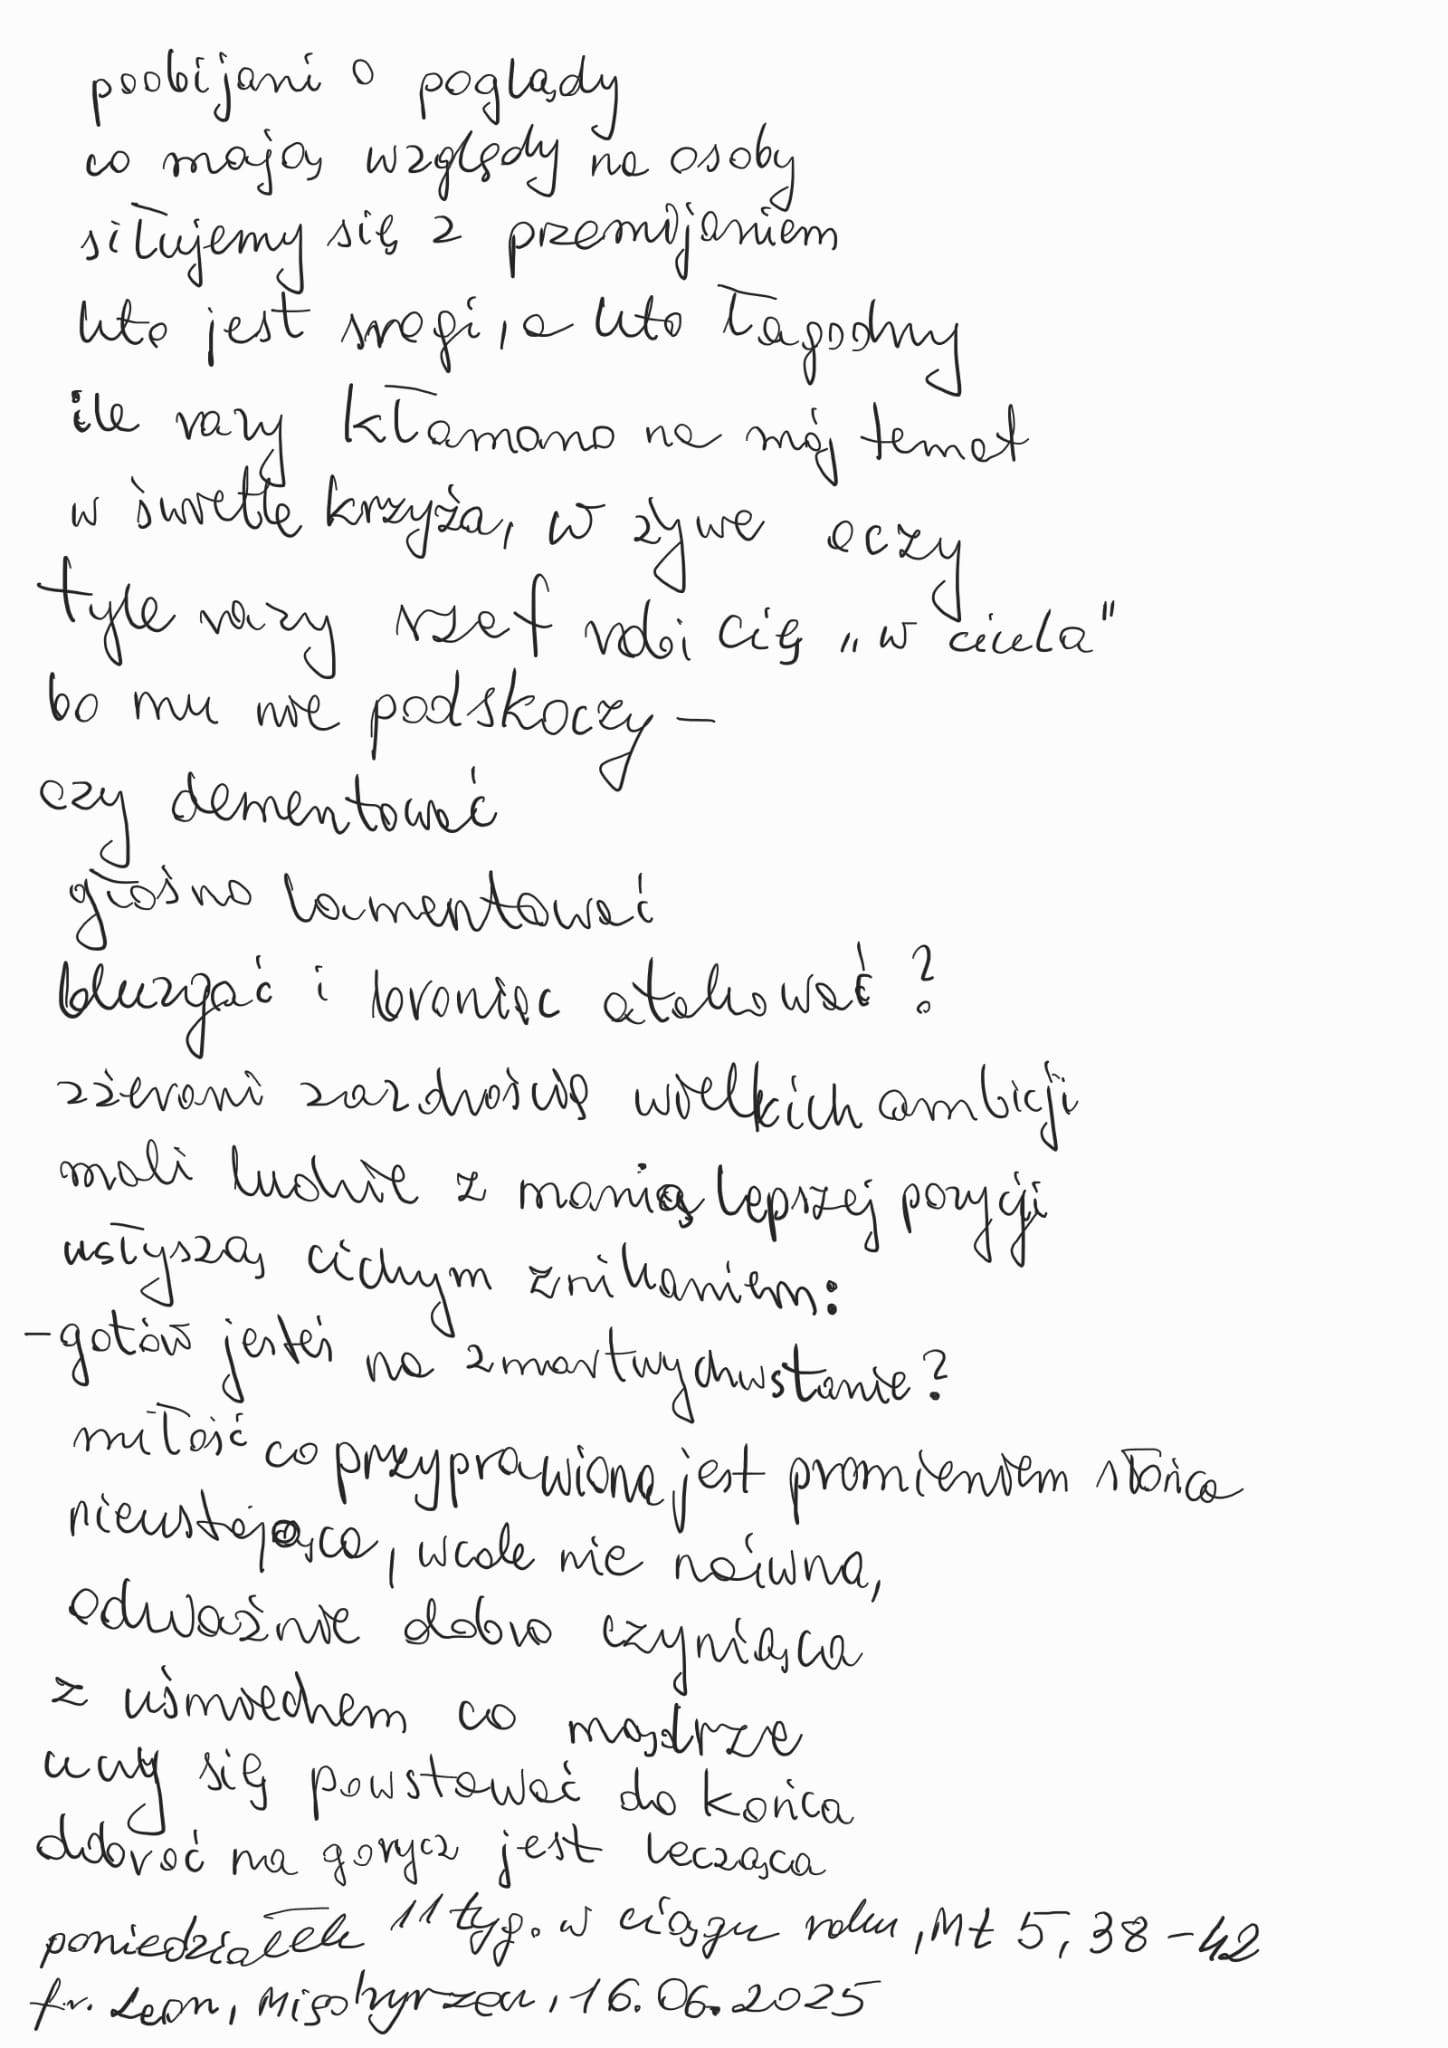 poobijani o poglądy
co mają względy na osoby
siłujemy się z przemijaniem
kto jest srogi, a kto łagodny
ile razy kłamano na mój temat
w świetle krzyża, w żywe oczy
tyle razy szef robi cię „w ciula"
bo mu nie podskoczy –
czy dementować
głośno lamentować
bluzgać i broniąc atakować?
zżerani zazdrością wielkich ambicji
mali ludzie z manią lepszej pozycji
usłyszą cichym znikaniem:
– gotów jesteś na zmartwychwstanie?
miłość co przyprawioną jest promieniem słońca
nieustająca, wcale nie naiwna,
odważnie dobro czyniąca
z uśmiechem co mądrze
uczy się powstawać do końca
dobroć na gorycz jest lecząca
poniedziałek 11 tyg. w ciągu roku, Mt 5, 38-42
fr. Leon, 16.06.2025